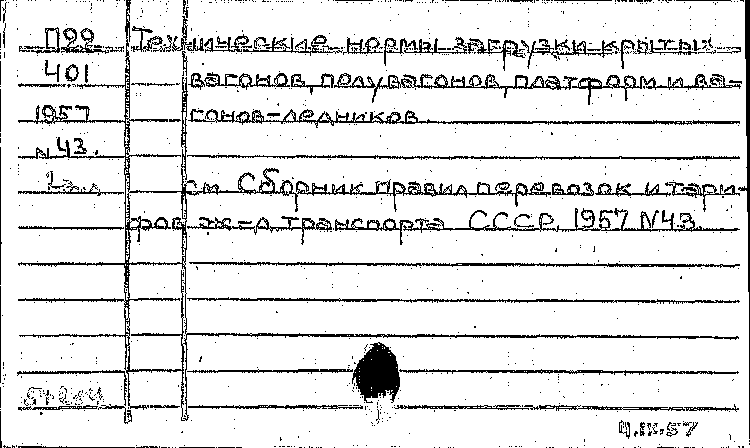 П99 Технические нормы загрузки крытых
401 вагонов, полувагонов, платформ и ва-
1957 гонов-ледников.
N 43.
см. Сборник правил перевозок и тари-
фов ж=д. транспорта СССР, 1957 N43.
4.IX.57